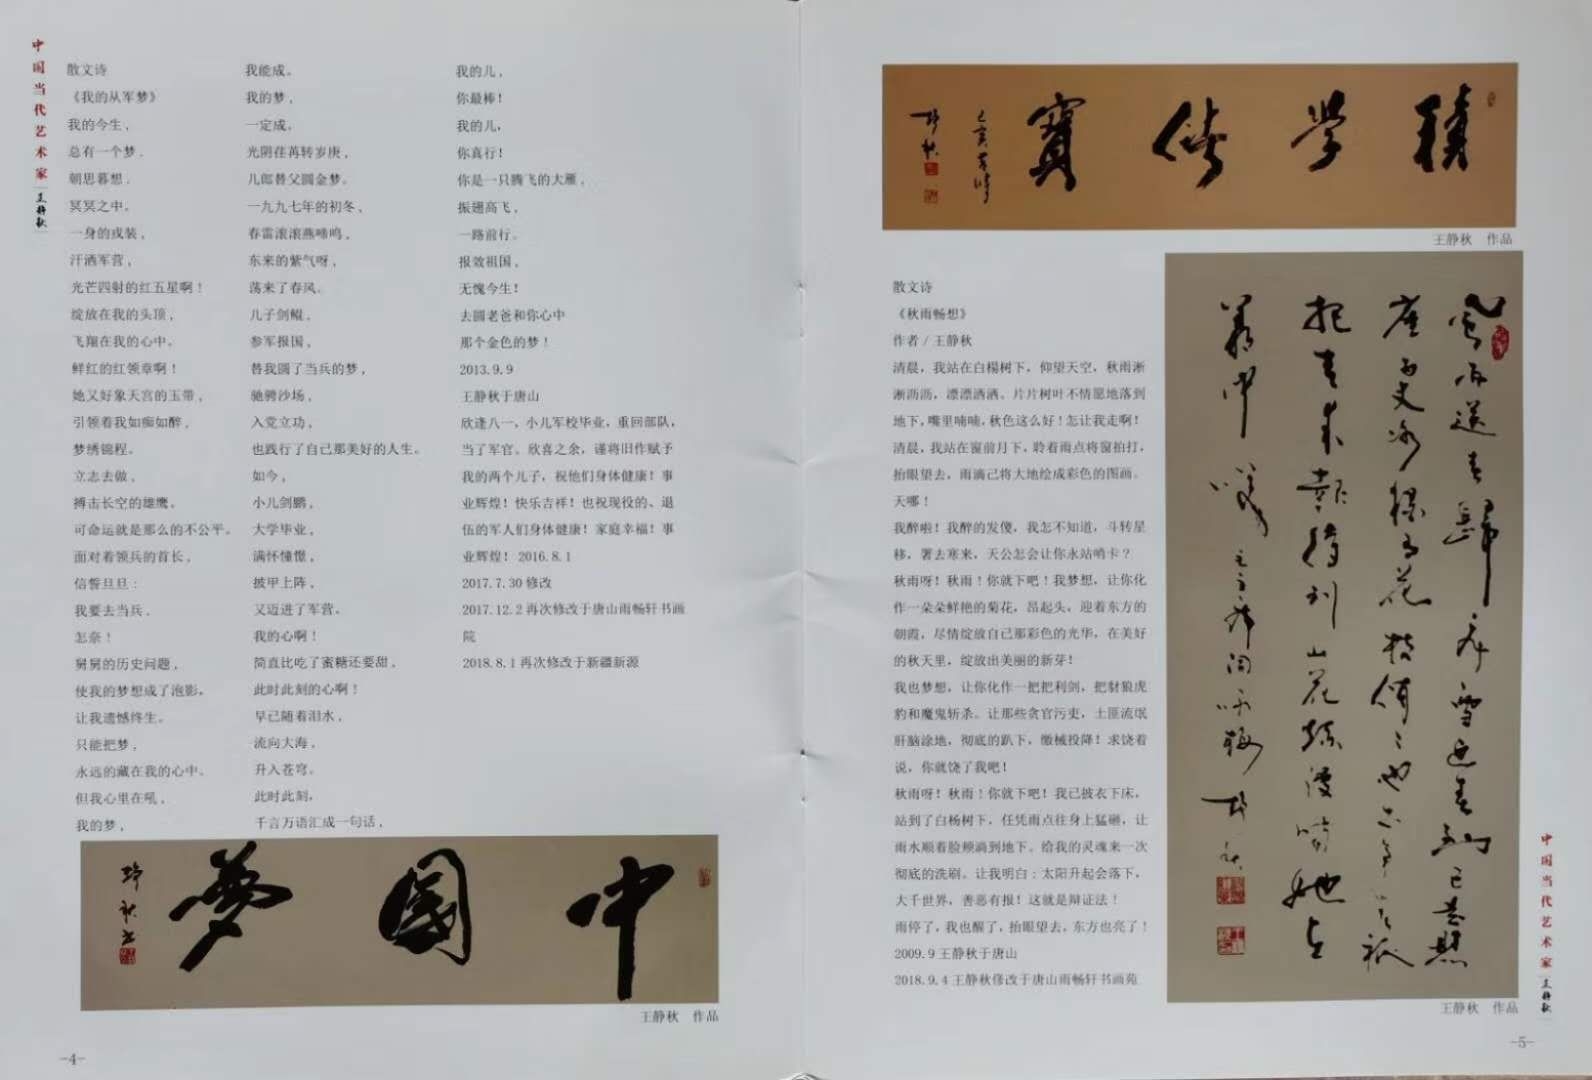 中国当代艺术家 王静秋
散文诗
《我的从军梦》
我的今生，
总有一个梯.
朝思暮想．
冥冥之中。
一身的戎装，
汗洒军营，
光芒四射的红五星啊！
绽放在我的头顶，
飞翔在我的心中。
鲜红的红领章啊！
她又好象天宫的玉带，
引领着我如痴如醉，
梦绣锦程。
立志去做，
搏击长空的雄鹰。
可命运就是那么的不公平。
面对着领兵的首长，
信誓旦旦：
我要去当兵．
怎奈！
舅舅的历史问题，
使我的梦想成了泡影。
让我遗憾终生。
只能把梦，
永远的藏在我的心中。
但我心里在吼，
我的梦，
我能成。
我的梦，
一定成。
光阴荏苒转岁庚，
儿郎替父圆金梦。
一九九七年的初冬，
春雷滚滚燕啼鸣，
东来的紫气呀，
荡来了春风。
儿子剑鲲，
参军报国，
替我圆了当兵的梦，
驰骋沙场，
入党立功，
也践行了自己那美好的人生。
如今，
小儿剑鹏，
大学毕业，
满怀憧憬，
披甲上阵，
又迈进了军营。
我的心啊！
简直比吃了蜜糖还要甜，
此时此刻的心啊！
早已随着泪水，
流向大海，
升入苍穹。
此时此刻，
千言万语汇成一句话，
我的儿，
你最棒！
我的儿，
你真行！
你是一只腾飞的大雁，
振翅高飞，
一路前行。
报效祖国，
无愧今生！
去圆老爸和你心中
那个金色的梦！
2013.9.9
王静秋于唐山
欣逢八一，小儿军校毕业，重回部队，
当了军官。欣喜之余，谨将旧作赋予
我的两个儿子，祝他们身体健康！事
业辉煌！快乐吉祥！也祝现役的、退
伍的军人们身体健康！家庭幸福！事
业辉煌！2016.8.1
2017.7.30 修改
2017.12.2 再次修改于唐山雨畅轩书画
院
2018.8.1 再次修改于新疆新源
中国梦
静秋书
王静秋 作品
-4-
積學儲寶
己亥
静秋
王静秋 作品
散文诗
《秋雨畅想》
作者 / 王静秋
清晨，我站在白楊树下，仰望天空，秋雨淅
淅沥沥，漂漂洒洒。片片树叶不情愿地落到
地下，嘴里喃喃，秋色这么好！怎让我走啊！
清晨，我站在窗前月下，聆着雨点将窗拍打，
抬眼望去，雨滴己将大地绘成彩色的图画。
天哪！
我醉啦！我醉的发傻，我怎不知道，斗转星
移，署去寒来，天公怎会让你永站哨卡？
秋雨呀！秋雨！你就下吧！我梦想，让你化
作一朵朵鲜艳的菊花，昂起头，迎着东方的
朝霞，尽情绽放自己那彩色的光华，在美好
的秋天里，绽放出美丽的新芽！
我也梦想，让你化作一把把利剑，把豺狼虎
豹和魔鬼斩杀。让那些贪官污吏，土匪流氓
肝脑涂地，彻底的趴下，缴械投降！求饶着
说，你就饶了我吧！
秋雨呀！秋雨！你就下吧！我已披衣下床，
站到了白杨树下，任凭雨点往身上猛砸，让
雨水顺着脸颊淌到地下。给我的灵魂来一次
彻底的洗刷。让我明白：太阳升起会落下，
大千世界，善恶有报！这就是辩证法！
雨停了，我也醒了，抬眼望去，东方也亮了！
2009.9 王静秋于唐山
2018.9.4 王静秋修改于唐山雨畅轩书画苑
風雨送春歸飛雪迎春到已是懸
崖百丈冰猶有花枝俏俏也不争春祇
把春來報待到山花爛漫時她在
叢中笑 毛主席詞咏梅 静秋
王静秋 作品
中国当代艺术家 王静秋
-5-